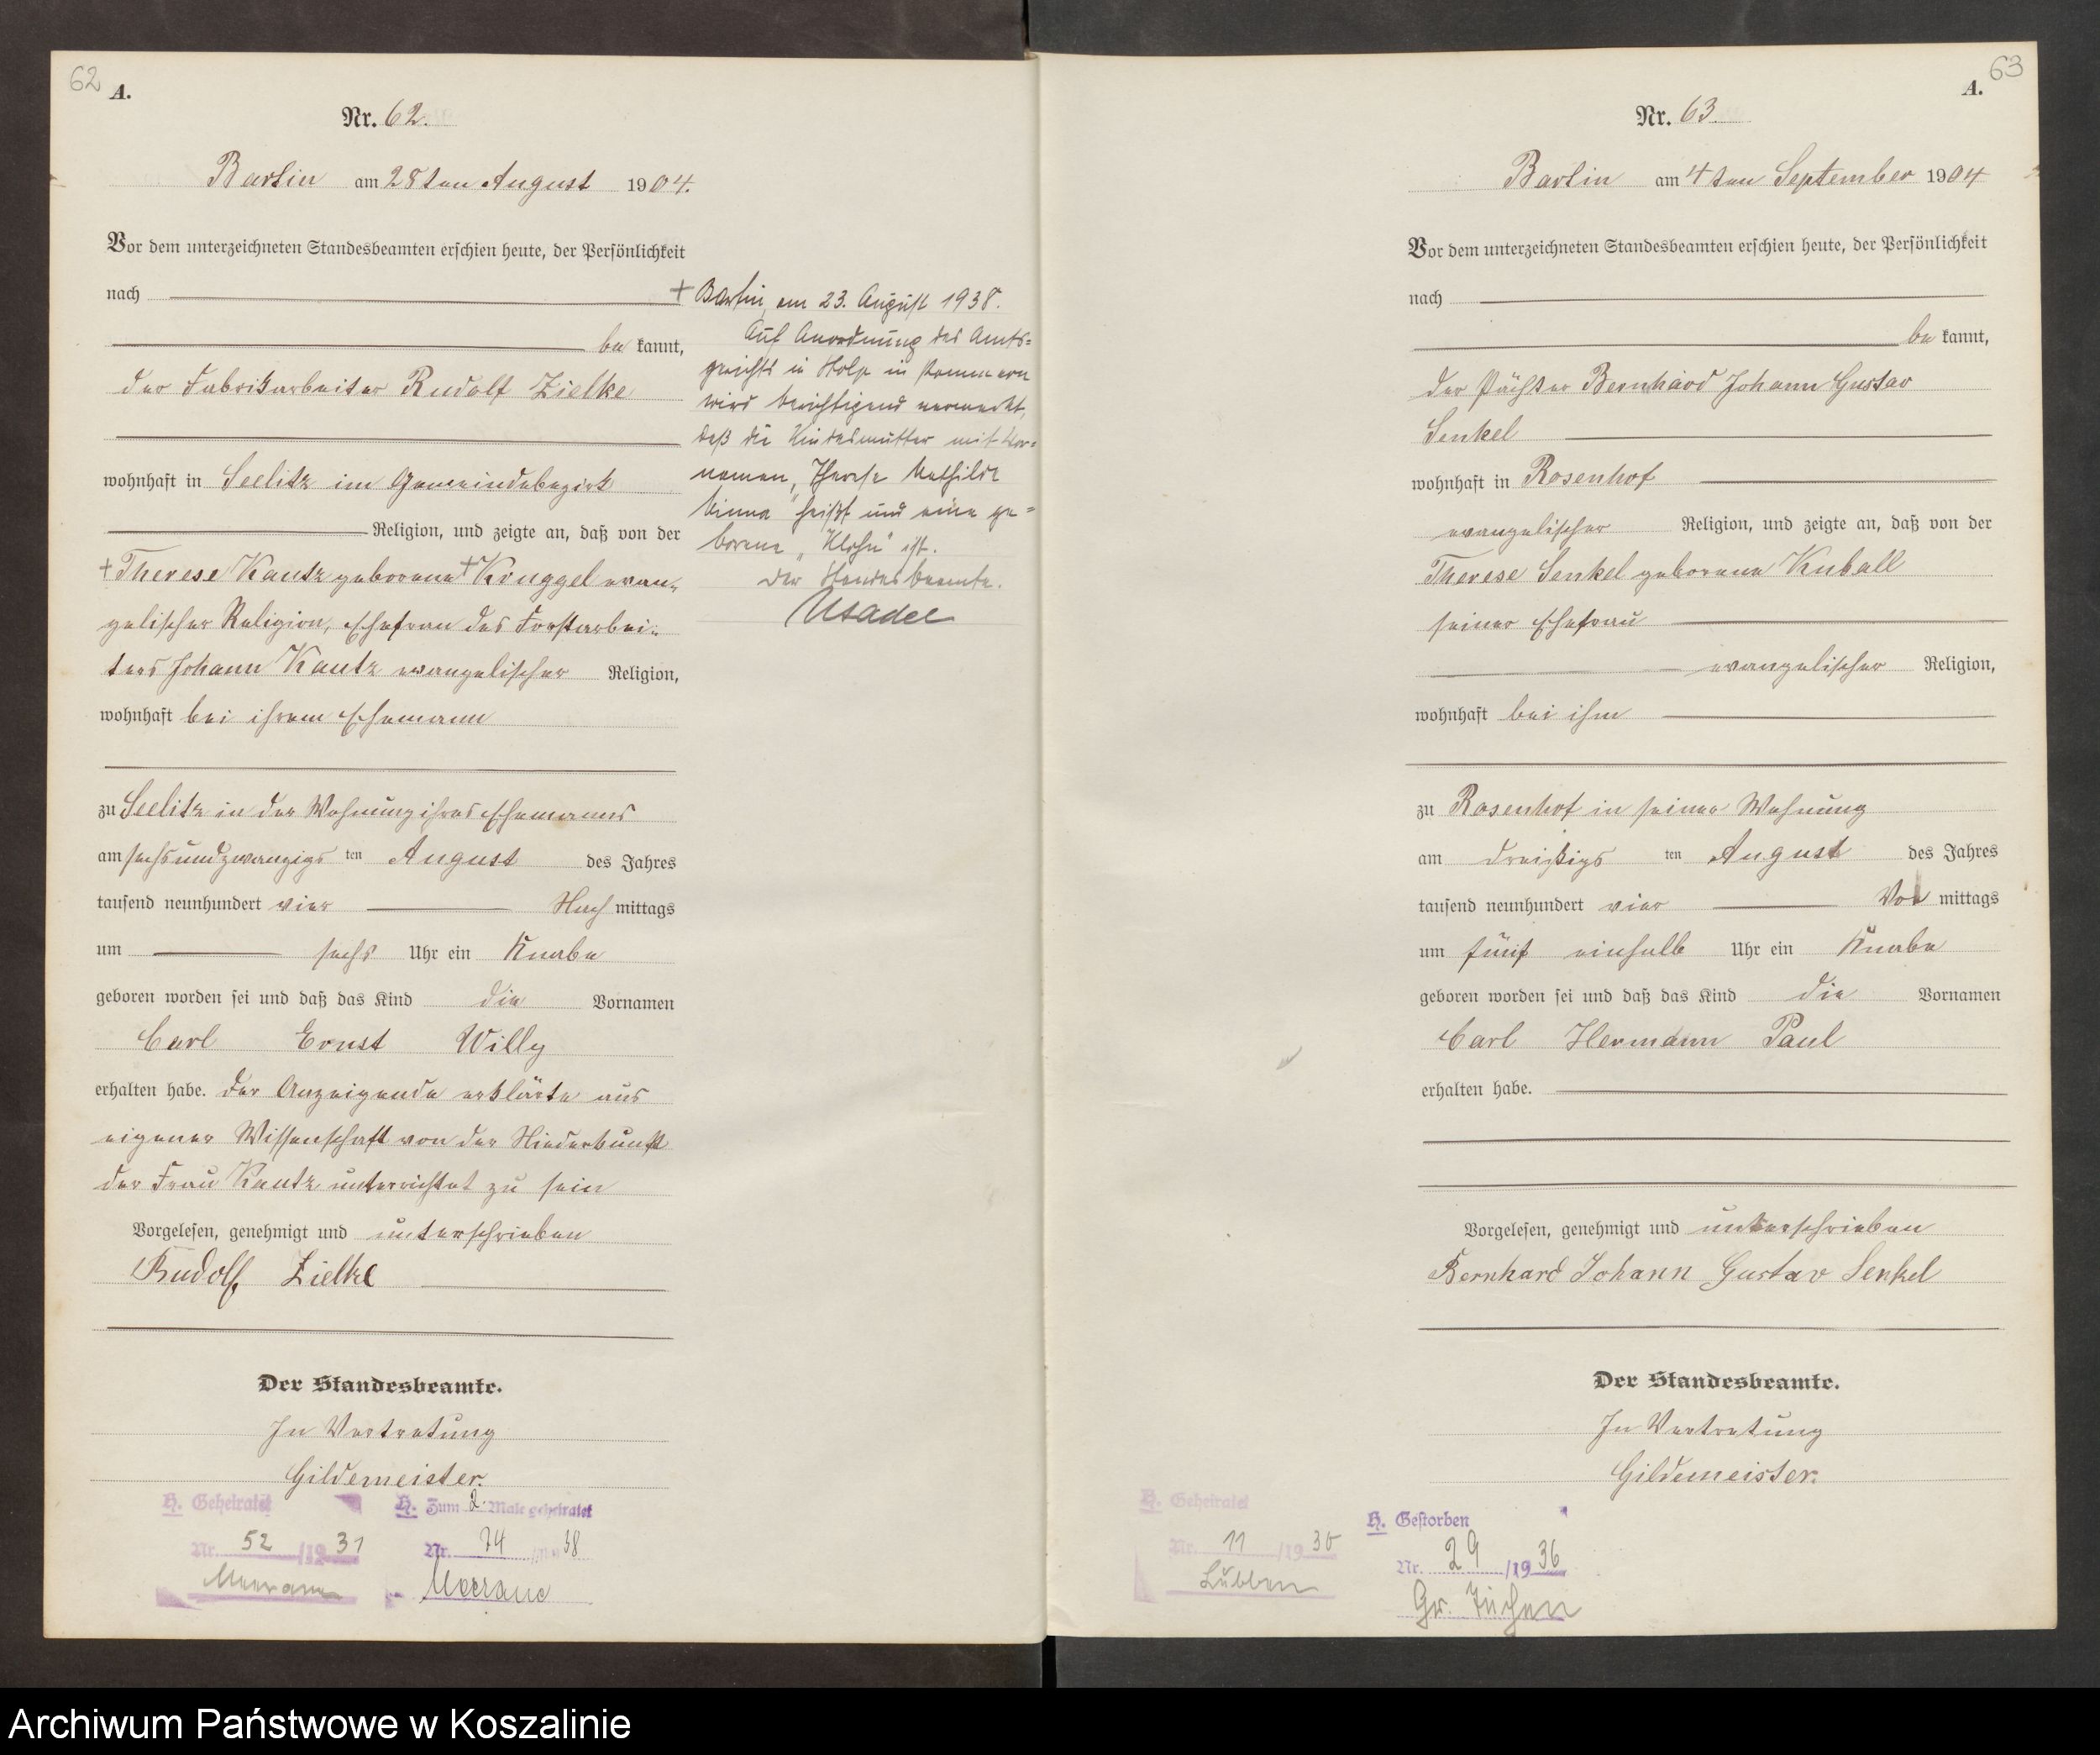 62
A.
Nr. 62.
Bartin am 28ten August 1904.
Vor dem unterzeichneten Standesbeamten erschien heute, der Persönlichkeit
nach
be kannt,
der Fabrikarbeiter Rudolf Zielke
wohnhaft in Seelitz im Gemeindebezirk
Religion, und zeigte an, daß von der
+ Therese Kautz geborene + Kruggel evan-
gelischer Religion, Ehefrau des Forstarbei-
ters Johann Kautz evangelischer Religion,
wohnhaft bei ihrem Ehemann
zu Seelitz in der Wohnung ihres Ehemanns
am sechsundzwanzigs ten August des Jahres
tausend neunhundert vier Nach mittags
um sechs Uhr ein Knabe
geboren worden sei und daß das Kind die Vornamen
Carl Ernst Willy
erhalten habe. Der Anzeigende erklärte aus
eigener Wissenschaft von der Niederkunft
der Frau Kautz unterrichtet zu sein
Vorgelesen, genehmigt und unterschrieben
Rudolf Zielke
Der Standesbeamte.
In Vertretung
Gildemeister.
H. Geheiratet
Nr. 52 /19 31
Meerane
H. Zum 2. Male geheiratet
Nr. 74 38
Meerane
+ Bartin, am 23. August 1938.
Auf Anordnung des Amts=
gerichts in Stolp in Pommern
wird berichtigend vermerkt,
daß die Kindesmutter mit Vor=
namen „Therese Mathilde
Minna" heißt und eine ge=
borene „Klohn" ist.
Der Standesbeamte.
Usadel
63
A.
Nr. 63.
Bartin am 4ten September 1904
Vor dem unterzeichneten Standesbeamten erschien heute, der Persönlichkeit
nach
be kannt,
der Pächter Bernhard Johann Gustav
Senkel
wohnhaft in Rosenhof
evangelischer Religion, und zeigte an, daß von der
Therese Senkel geborene Kuball
seiner Ehefrau
evangelischer Religion,
wohnhaft bei ihm
zu Rosenhof in seiner Wohnung
am dreißigs ten August des Jahres
tausend neunhundert vier Vor mittags
um fünf einhalb Uhr ein Knabe
geboren worden sei und daß das Kind die Vornamen
Carl Hermann Paul
erhalten habe.
Vorgelesen, genehmigt und unterschrieben
Bernhard Johann Gustav Senkel
Der Standesbeamte.
In Vertretung
Gildemeister.
H. Geheiratet
Nr. 11 /19 30
Lubben
H. Gestorben
Nr. 29 /19 36
Gr.
Archiwum Państwowe w Koszalinie